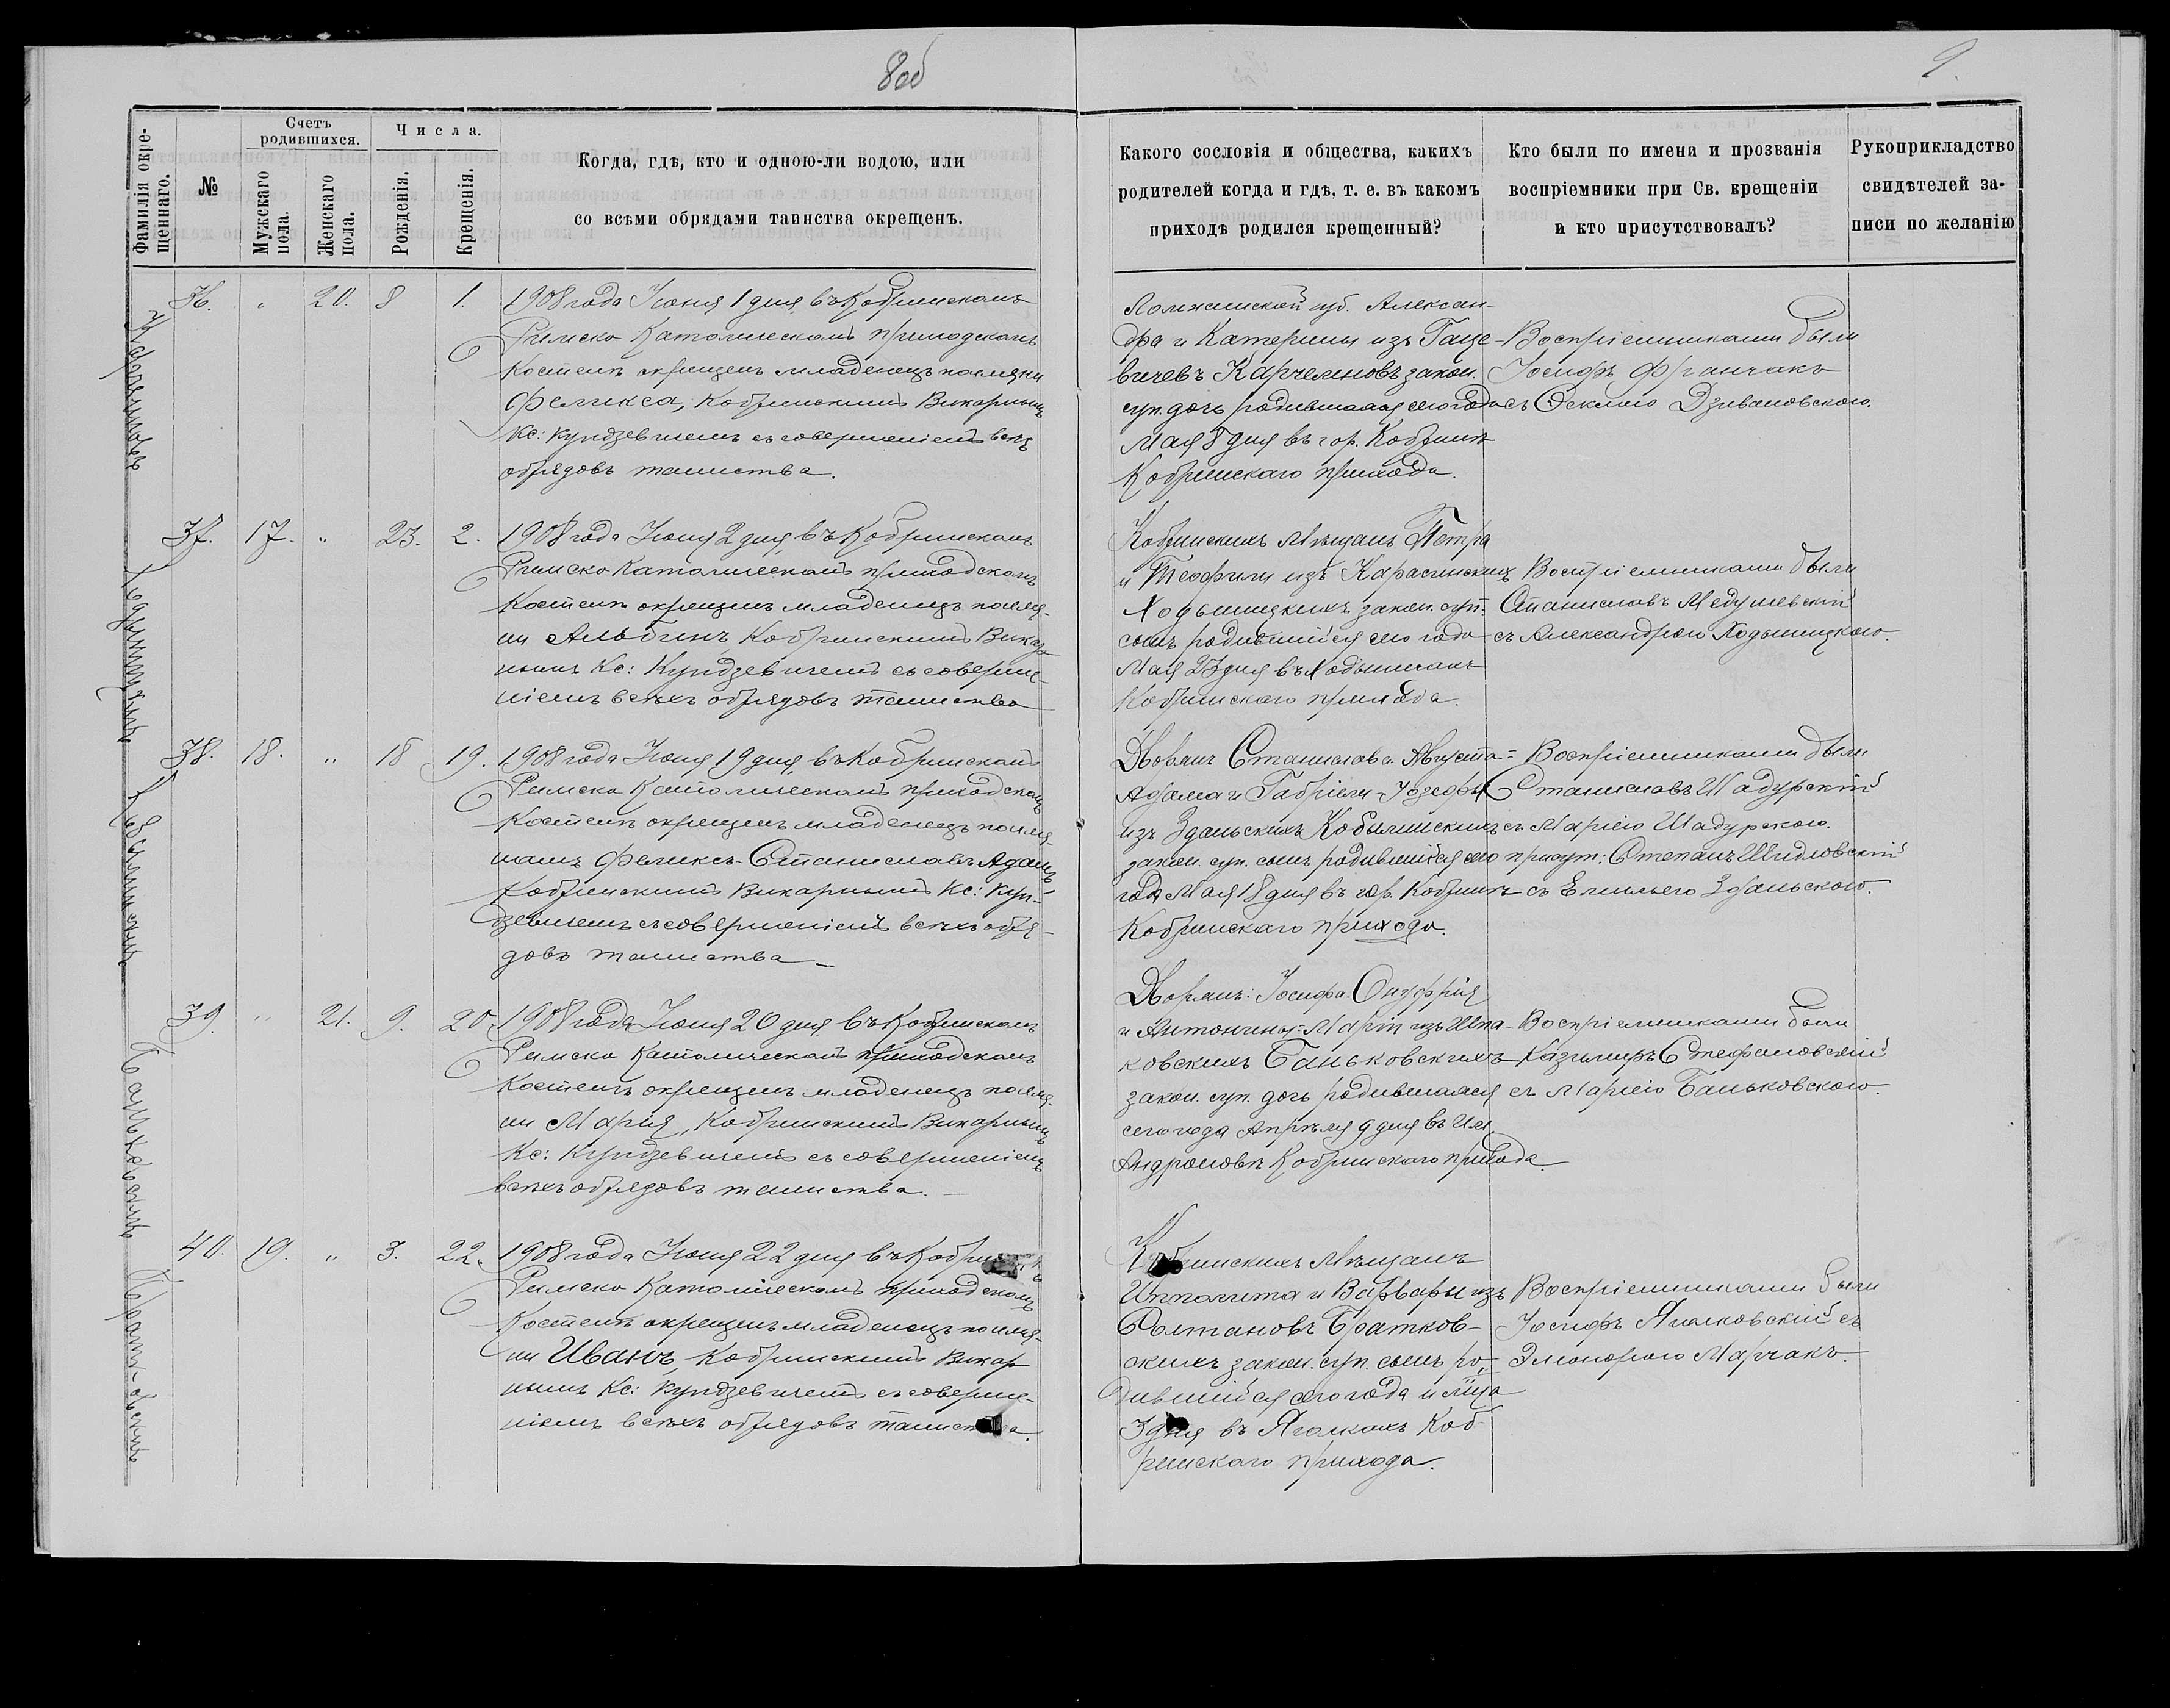 8об
9.
Фамилія окре-
щеннаго.
№
Счетъ
родившихся.
Мужскаго
пола.
Женскаго
пола.
Числа.
Рожденія.
Крещенія.
Когда, гдѣ, кто и одною-ли водою, или
со всѣми обрядами таинства окрещенъ.
Какого сословія и общества, какихъ
родителей когда и гдѣ, т. е. въ какомъ
приходѣ родился крещенный?
Кто были по имени и прозванія
воспріемники при Св. крещеніи
и кто присутствовалъ?
Рукоприкладство
свидѣтелей за-
писи по желанію
36. " 20. 8 1.
1908 года Іюня 1 дня, въ Кобринскомъ
Римско Католическомъ приходскомъ
Костелѣ окрещенъ младенецъ по имени
Феликса, Кобринскимъ Викарнымъ
Кс: Кундзевичемъ съ совершеніемъ всѣхъ
обрядовъ таинства.
Ломжинской губ. Алексан-
дра и Катерины изъ Гаце-
вичевъ Карчемновъ закон.
суп. дочь родившаяся сего года
Мая 8 дня въ гор. Кобринѣ
Кобринскаго прихода.
Воспріемниками были
Іосифъ Францакъ
съ Феклою Дзивановскою.
37. 17. " 23. 2.
Ходыницкій
1908 года Іюня 2 дня, въ Кобринскомъ
Римско Католическомъ приходскомъ
Костелѣ окрещенъ младенецъ по име-
ни Альбинъ, Кобринскимъ Викар-
нымъ Кс: Кундзевичемъ съ соверше-
ніемъ всѣхъ обрядовъ таинства
Кобринскихъ Мѣщанъ Петра
и Теофили изъ Карасинскихъ
Ходыницкихъ закон. суп.
сынъ родившійся сего года
Мая 23 дня въ Ходыничахъ
Кобринскаго прихода.
Воспріемниками были
Станиславъ Медушевскій
съ Александрою Ходыницкою.
38. 18. " 18 19.
Кобылинскій
1908 года Іюня 19 дня, въ Кобринскомъ
Римско Католическомъ приходскомъ
Костелѣ окрещенъ младенецъ по име-
намъ Феликсъ-Станиславъ Адамъ,
Кобринскимъ Викарнымъ Кс: Кун-
дзевичемъ съ совершеніемъ всѣхъ обря-
довъ таинства
Дворянъ Станислава Августа-
Адама и Габріели-Іозефы
изъ Здальскихъ Кобылинскихъ
закон. суп. сынъ родившійся сего
года Мая 18 дня въ гор. Кобринѣ
Кобринскаго прихода.
Воспріемниками были
Станиславъ Шадурскій
съ Маріею Шадурскою.
присут: Степанъ Шидловскій
съ Емильею Здальскою.
39. " 21. 9. 20
Баньковскій
1908 года Іюня 20 дня, въ Кобринскомъ
Римско Католическомъ приходскомъ
Костелѣ окрещенъ младенецъ по име-
ни Марія, Кобринскимъ Викарнымъ
Кс: Кундзевичемъ съ совершеніемъ
всѣхъ обрядовъ таинства.
Дворянъ: Іосифа-Онуфрія
и Антонины-Маріи изъ Шпа-
ковскихъ Баньковскихъ
закон. суп. дочь родившаяся
сего года Апрѣля 9 дня въ им.
Андроновѣ Кобринскаго прихода
Воспріемниками были
Казимиръ Стефановскій
съ Маріею Баньковскою.
40. 19. " 3. 22.
Братковскій
1908 года Іюня 22 дня въ Кобринскомъ
Римско Католическомъ приходскомъ
Костелѣ окрещенъ младенецъ по име-
ни Иванъ, Кобринскимъ Викар
нымъ Кс: Кундзевичемъ съ соверше-
ніемъ всѣхъ обрядовъ таинства.
Кобринскихъ Мѣщанъ
Ипполита и Варвары изъ
Ролтановъ Братков-
скихъ закон. суп. сынъ ро-
дившійся сего года и м-ца
3 дня въ Ягелкахъ Коб-
ринскаго прихода.
Воспріемниками были
Іосифъ Ячолковскій съ
Элеонорою Марчакъ.